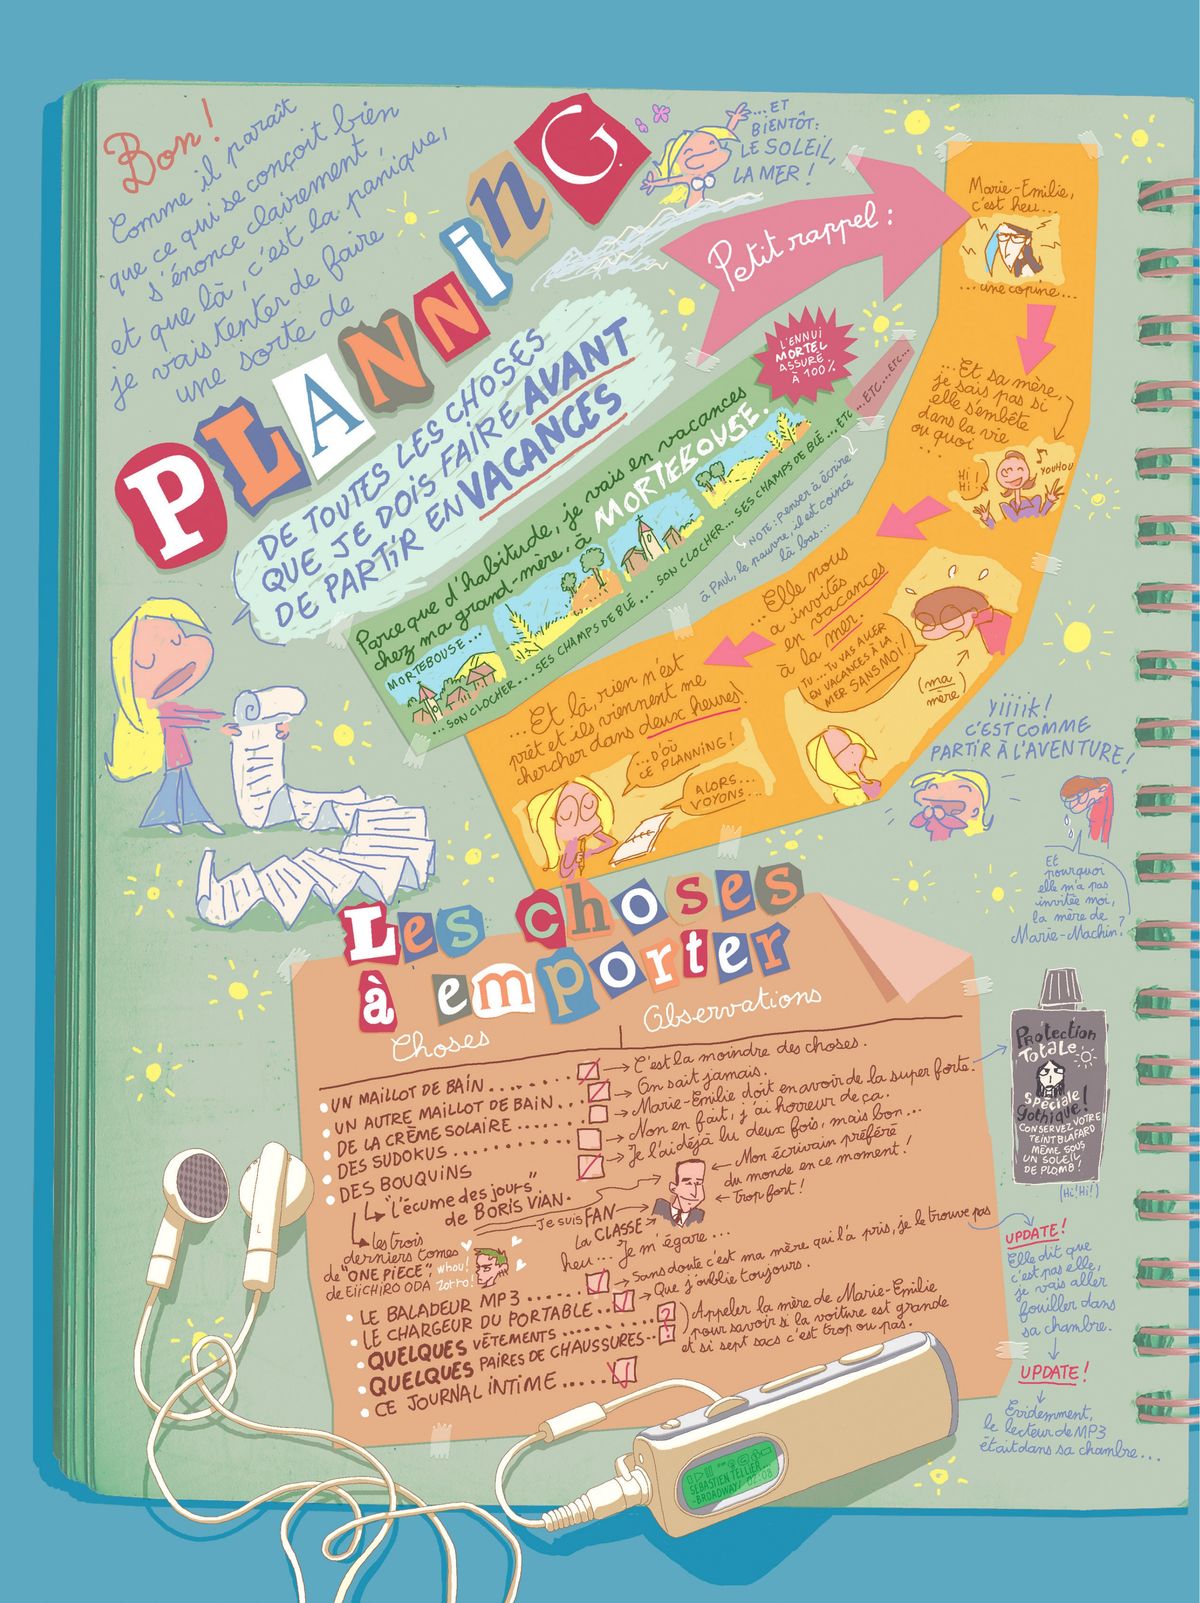 Bon !
Comme il paraît
que ce qui se conçoit bien
s'énonce clairement,
et que là, c'est la panique,
je vais tenter de faire
une sorte de
PLANNING
DE TOUTES LES CHOSES
QUE JE DOIS FAIRE AVANT
DE PARTIR EN VACANCES
...ET
BIENTÔT:
LE SOLEIL,
LA MER !
Petit rappel :
Parce que d'habitude, je vais en vacances
chez ma grand-mère, à MORTEBOUSE.
L'ENNUI
MORTEL
ASSURÉ
À 100%
MORTEBOUSE...
...SON CLOCHER... SES CHAMPS DE BLÉ... SON CLOCHER... SES CHAMPS DE BLÉ... ETC
...ETC... ETC...
NOTE: Penser à écrire
à Paul, le pauvre, il est coincé
là bas...
Marie-Emilie,
c'est heu...
...une copine...
...Et sa mère,
je sais pas si
elle s'embête
dans la vie
ou quoi
...
HI
HI !
YOUHOU
...Elle nous
a invités
en vacances
à la mer.
TU... TU VAS ALLER
EN VACANCES À LA
MER SANS MOI !
(ma
mère)
...Et là, rien n'est
prêt et ils viennent me
chercher dans deux heures!
...D'OÙ
CE PLANNING !
ALORS...
VOYONS...
YIIIIK!
C'EST COMME
PARTIR À L'AVENTURE !
Et
pourquoi
elle m'a pas
invitée moi,
la mère de
Marie-Machin ?
Les choses
à emporter
Choses
Observations
UN MAILLOT DE BAIN ........ → C'est la moindre des choses.
UN AUTRE MAILLOT DE BAIN... → On sait jamais.
DE LA CRÈME SOLAIRE ....... → Marie-Emilie doit en avoir de la super forte.
DES SUDOKUS .......... → Non en fait, j'ai horreur de ça.
DES BOUQUINS → Je l'ai déjà lu deux fois, mais bon...
"L'écume des jours"
de BORIS VIAN.
← Mon écrivain préféré
du monde en ce moment !
← trop fort !
Je suis FAN
La CLASSE
heu... Je m'égare...
les trois
derniers tomes
de "ONE PIECE",
de EIICHIRO ODA
whou!
Zorro!
LE BALADEUR MP3 ...... → Sans doute c'est ma mère qui l'a pris, je le trouve pas
LE CHARGEUR DU PORTABLE... → Que j'oublie toujours.
QUELQUES VÊTEMENTS ........ ?
QUELQUES PAIRES DE CHAUSSURES... ?
Appeler la mère de Marie-Emilie
pour savoir si la voiture est grande
et si sept sacs c'est trop ou pas.
CE JOURNAL INTIME .....
Protection
Totale
Spéciale
gothique !
CONSERVEZ VOTRE
TEINT BLAFARD
MÊME SOUS
UN SOLEIL
DE PLOMB !
(Hi! Hi!)
UPDATE !
Elle dit que
c'est pas elle,
je vais aller
fouiller dans
sa chambre.
UPDATE !
Evidemment,
le lecteur de MP3
était dans sa chambre...
L
SEBASTIEN TELLIER...
-BROADWAY/ 02:08